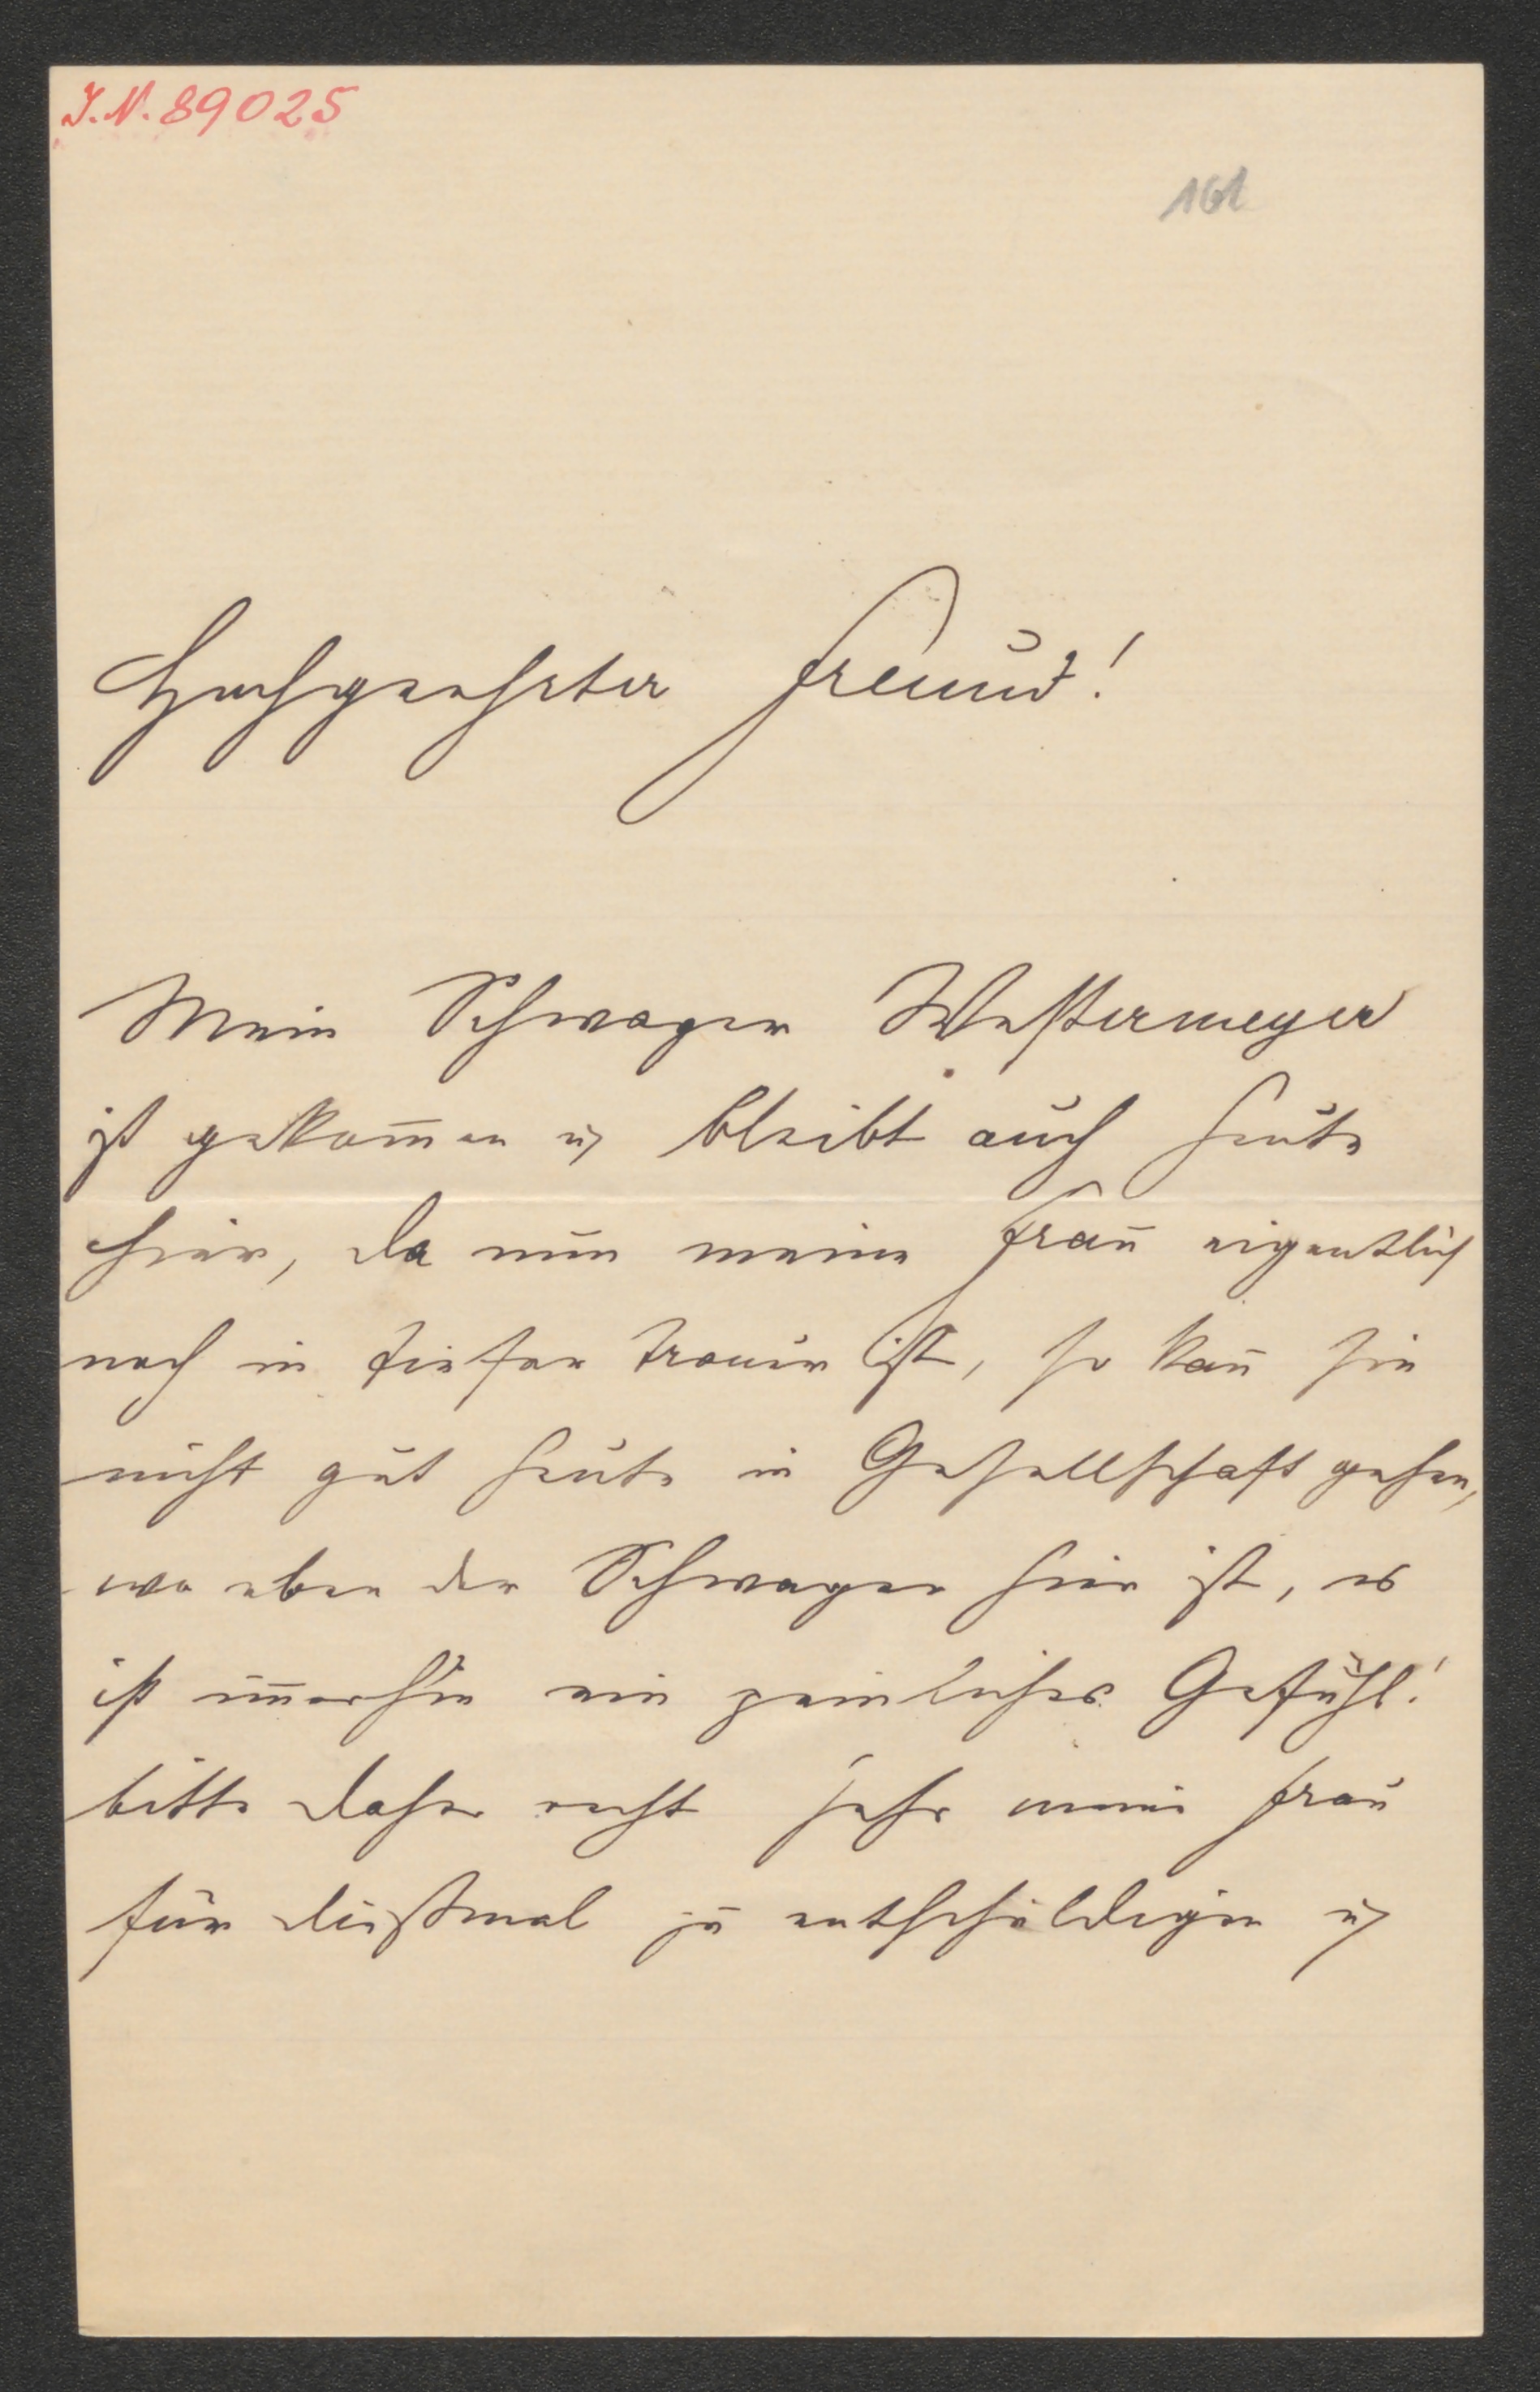 I.N. 89025
161
Hochgeehrter Freund!
Mein Schwager Westermeyer
ist gekom̄en u bleibt auch heute
hier, da nun meine Frau eigentlich
noch in tiefer Trauer ist, so kan̄ sie
nicht gut heute in Gesellschaft gehen,
wo eben der Schwager hier ist, es
ist im̄erhin ein peinliches Gefühl!
bitte daher recht sehr meine Frau
für dießmal zu entschuldigen u